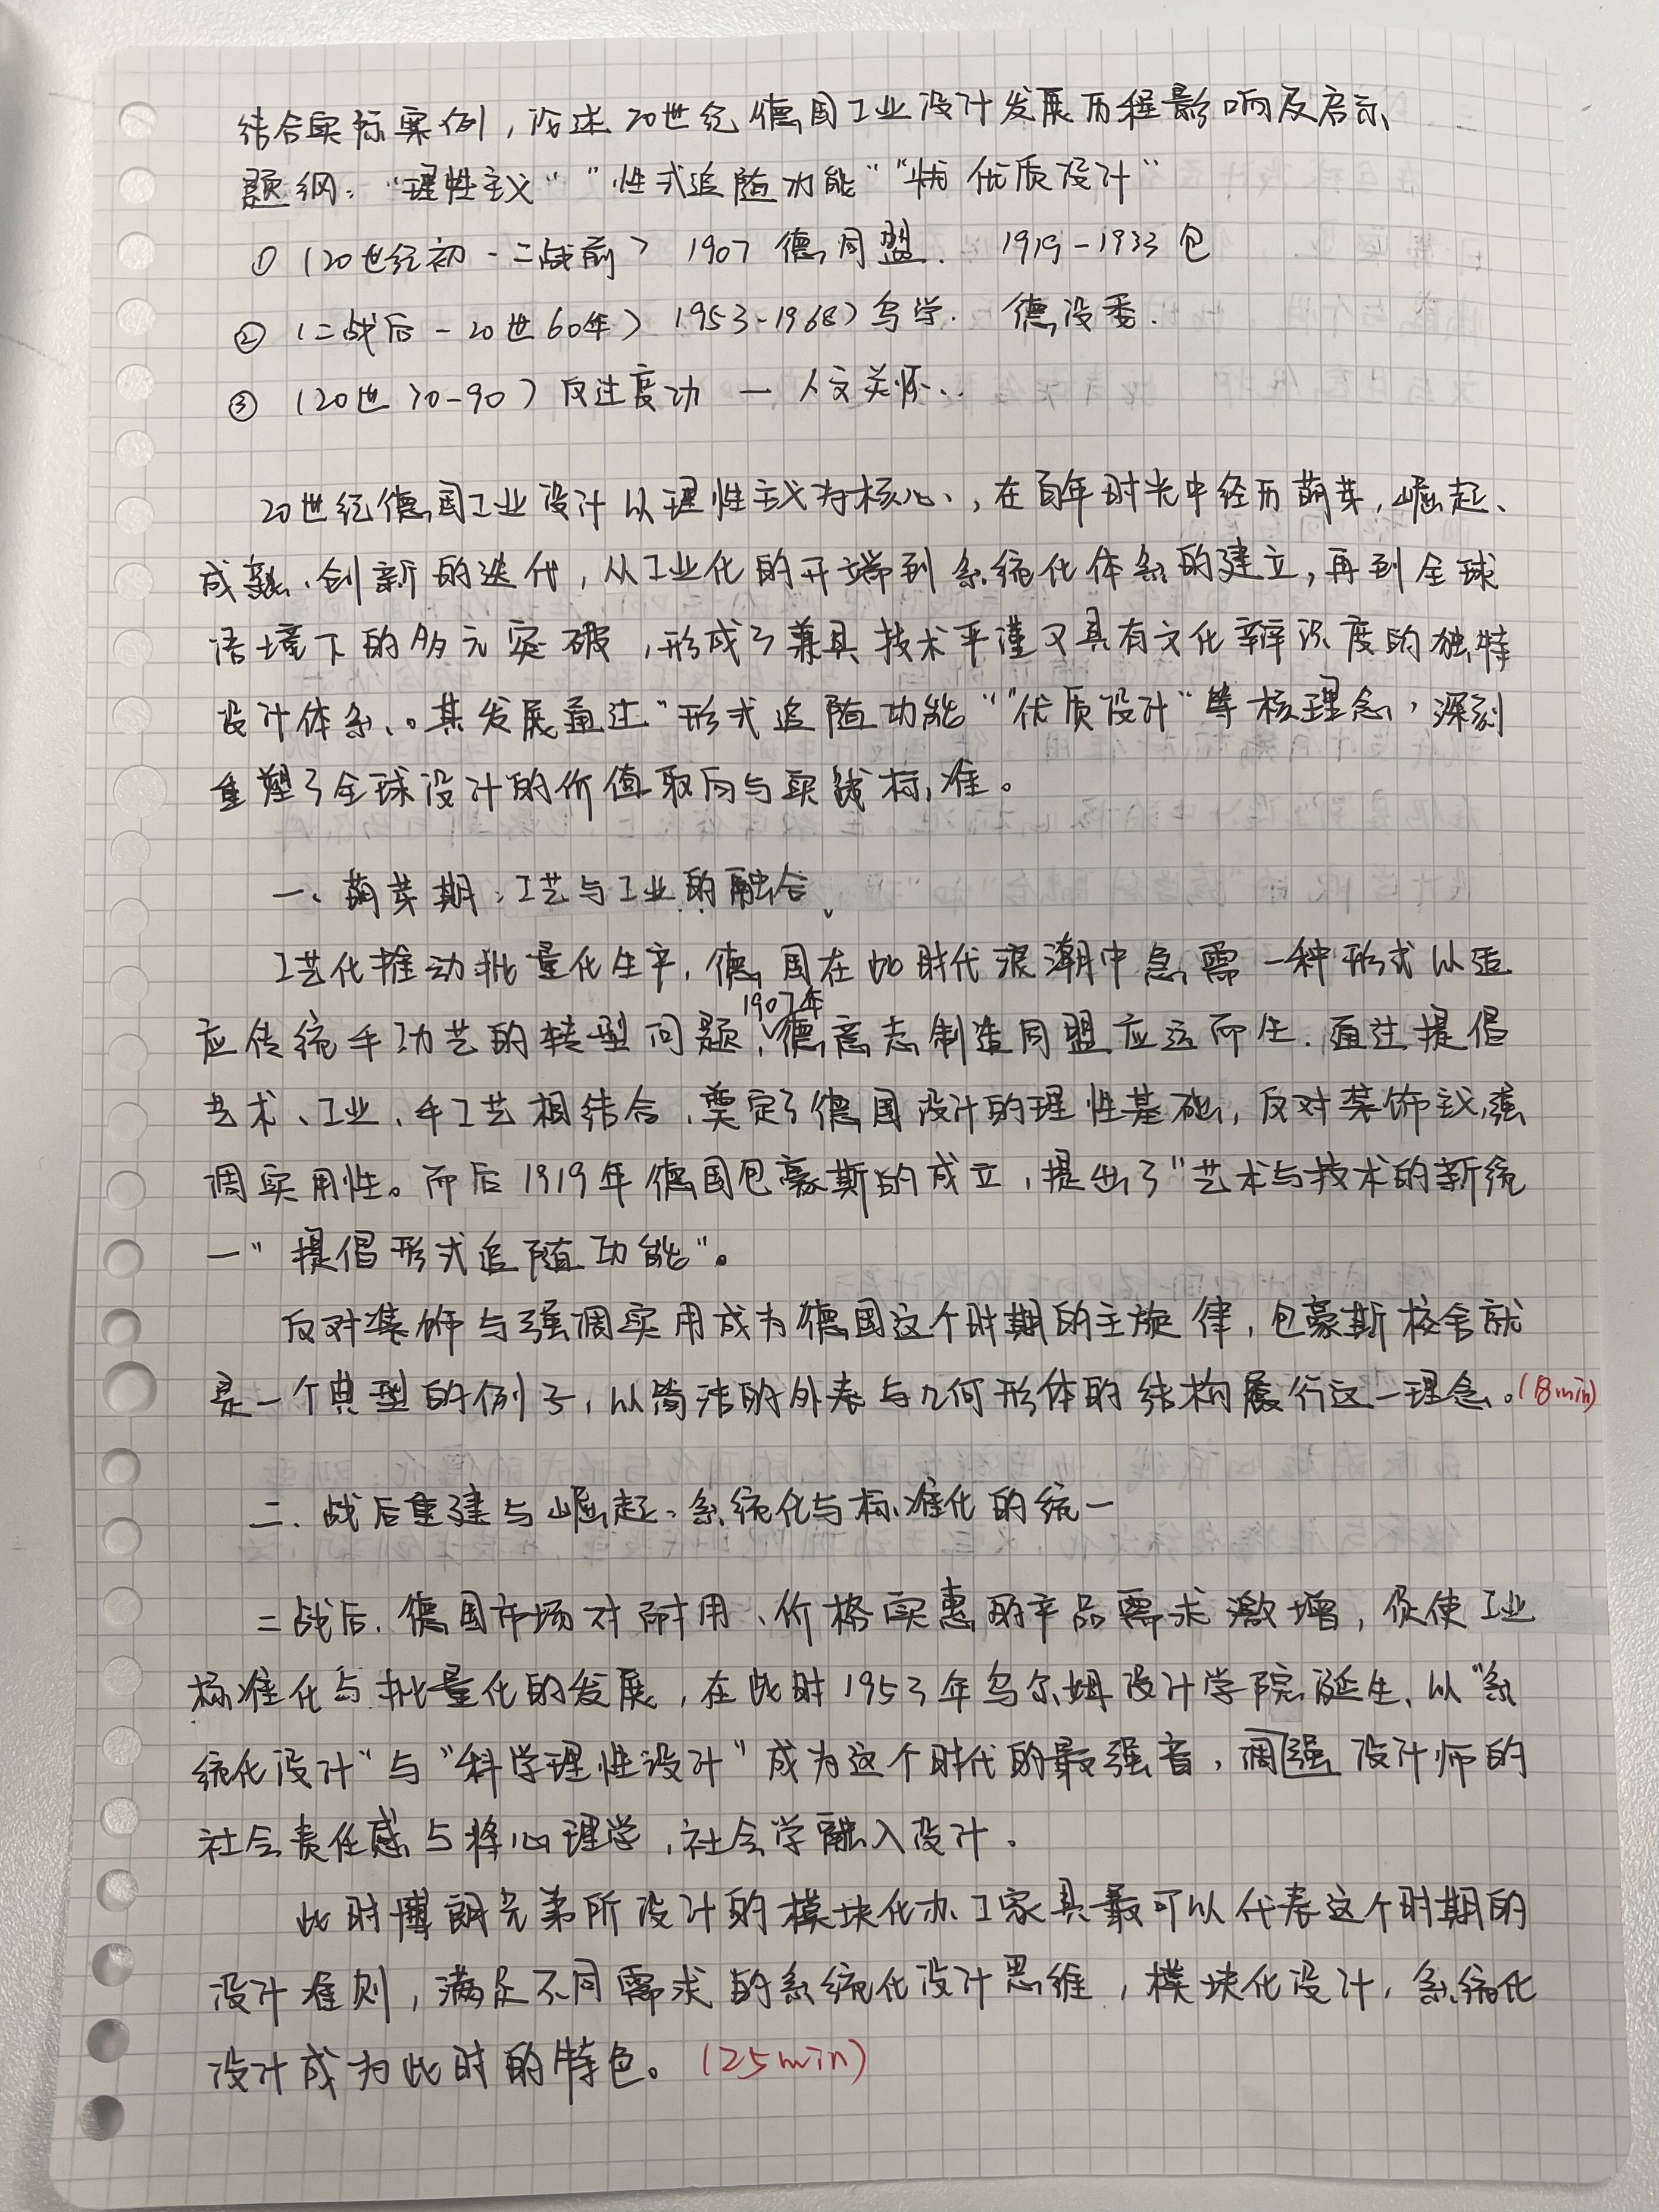 结合实际案例，论述20世纪德国工业设计发展历程影响及启示
题纲："理性主义" "性式追随功能" "优质设计"
① (20世纪初-二战前) 1907 德同盟. 1919-1933 包
② (二战后-20世60年) 1953-1968) 乌学. 德设委.
③ (20世70-90) 反过度功 — 人文关怀..
20世纪德国工业设计以理性主义为核心，在百年时光中经历萌芽，崛起、
成熟、创新的迭代，从工业化的开端到系统化体系的建立，再到全球
语境下的多元突破，形成了兼具技术严谨又具有文化辨识度的独特
设计体系。其发展通过"形式追随功能""优质设计"等核理念，深刻
重塑了全球设计的价值取向与实践标准。
一、萌芽期：工艺与工业的融合
工艺化推动批量化生产，德国在此时代浪潮中急需一种形式以适
应传统手功艺的转型问题，1907年德意志制造同盟应运而生.通过提倡
艺术、工业、手工艺相结合，奠定了德国设计的理性基础，反对装饰主义,强
调实用性。而后1919年德国包豪斯的成立，提出了"艺术与技术的新统
一"提倡形式追随功能"。
反对装饰与强调实用成为德国这个时期的主旋律，包豪斯校舍就
是一个典型的例子，以简洁的外表与几何形体的结构展行这一理念。(18min)
二.战后重建与崛起：系统化与标准化的统一
二战后，德国市场对耐用、价格实惠的产品需求激增，促使工业
标准化与批量化的发展，在此时1953年乌尔姆设计学院诞生、以"系
统化设计"与"科学理性设计"成为这个时代的最强音，调强设计师的
社会责任感与将心理学，社会学融入设计.
此时博朗兄弟所设计的模块化办工家具最可以代表这个时期的
设计准则，满足不同需求的系统化设计思维，模块化设计，系统化
设计成为此时的特色。(25min)